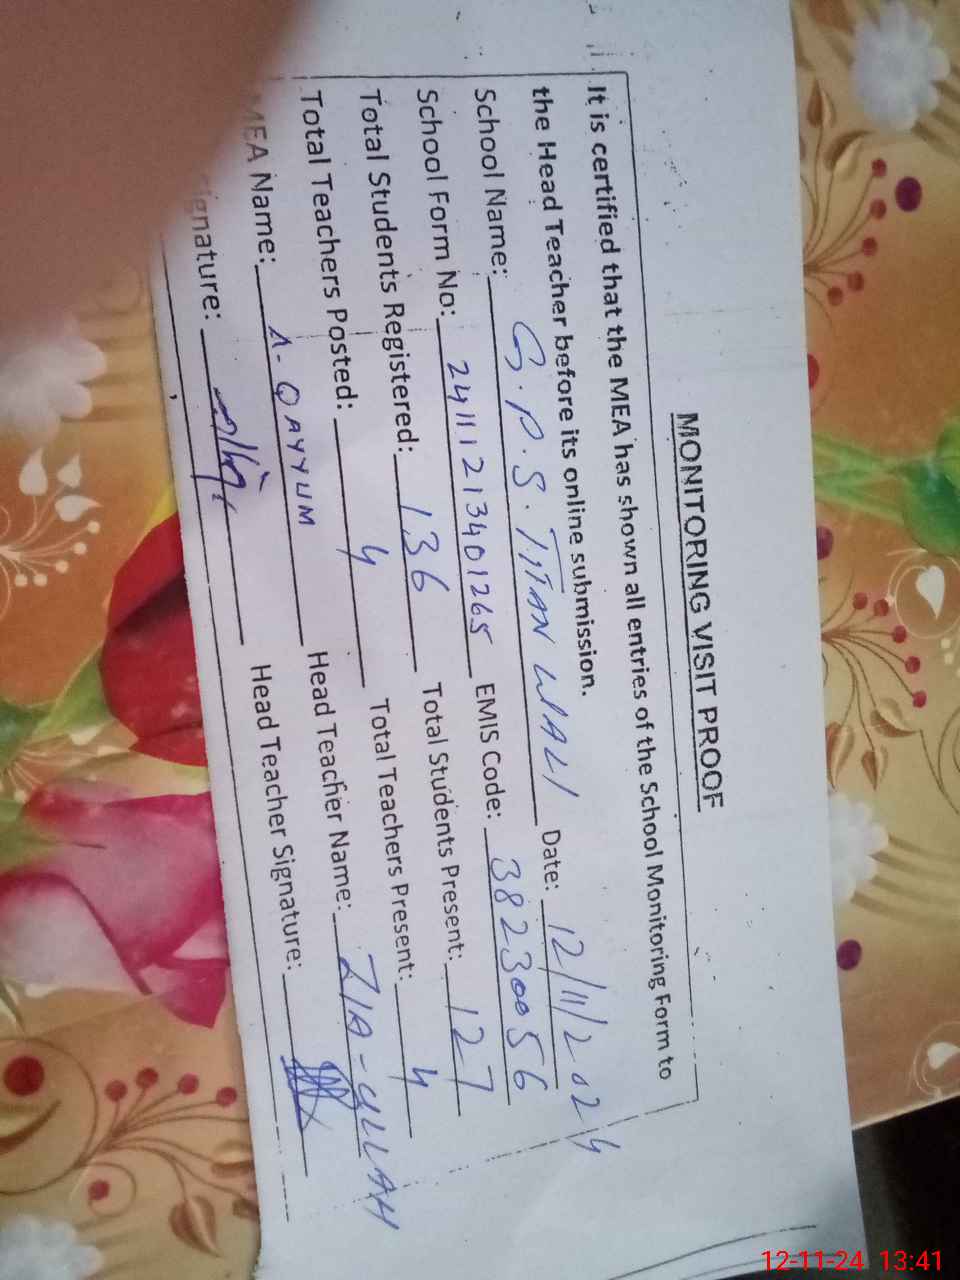 MONITORING VISIT PROOF
It is certified that the MEA has shown all entries of the School Monitoring Form to
the Head Teacher before its online submission.
School Name: G.P.S. TITAN WALI Date: 12/11/2024
School Form No: 2411121340 1265 EMIS Code: 38230056
Total Students Registered: 136 Total Students Present: 127
Total Teachers Posted: 4 Total Teachers Present: 4
MEA Name: A-QAYYUM Head Teacher Name: ZIA-ULLAH
ignature: Head Teacher Signature:
12-11-24 13:41